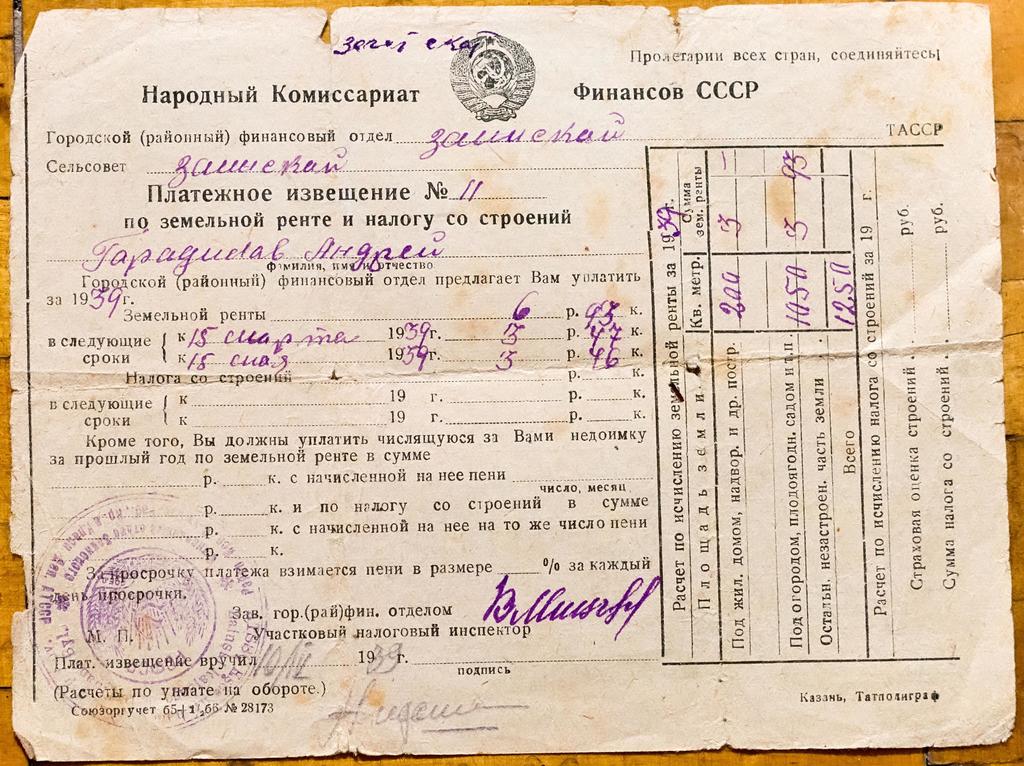 Пролетарии всех стран, соединяйтесь!
Народный Комиссариат Финансов СССР
Городской (районный) финансовый отдел Заинский ТАССР
Сельсовет Заинский
Платежное извещение № 11
по земельной ренте и налогу со строений
Андрей
фамилия, имя и отчество
Городской (районный) финансовый отдел предлагает Вам уплатить
за 1939г.
Земельной ренты 6 р. 93 к.
в следующие сроки { к 15 марта 1939г. 3 р. 47 к.
к 15 мая 1939г. 3 р. 46 к.
Налога со строений р. к.
в следующие сроки { к 19 г. р. к.
к 19 г. р. к.
Кроме того, Вы должны уплатить числящуюся за Вами недоимку
за прошлый год по земельной ренте в сумме
р. к. с начисленной на нее пени
число, месяц
р. к. и по налогу со строений в сумме
р. к. с начисленной на нее на то же число пени
р. к.
За просрочку платежа взимается пени в размере % за каждый
день просрочки.
Зав. гор.(рай)фин. отделом
М. П. Участковый налоговый инспектор
Плат. извещение вручил 1939г.
подпись
(Расчеты по уплате на обороте.)
Союзоргучет 65+1,66 № 28173
Расчет по исчислению земельной ренты за 1939г.
Площадь земли Кв. метр. Сумма зем. ренты
Под жил. домом, надвор. и др. постр. 200 3 –
Под огородом, плодоягодн. садом и т.п. 1050 3 93
Остальн. незастроен. часть земли
Всего 1250
Расчет по исчислению налога со строений за 19 г.
Страховая оценка строений руб.
Сумма налога со строений руб.
Казань, Татполиграф